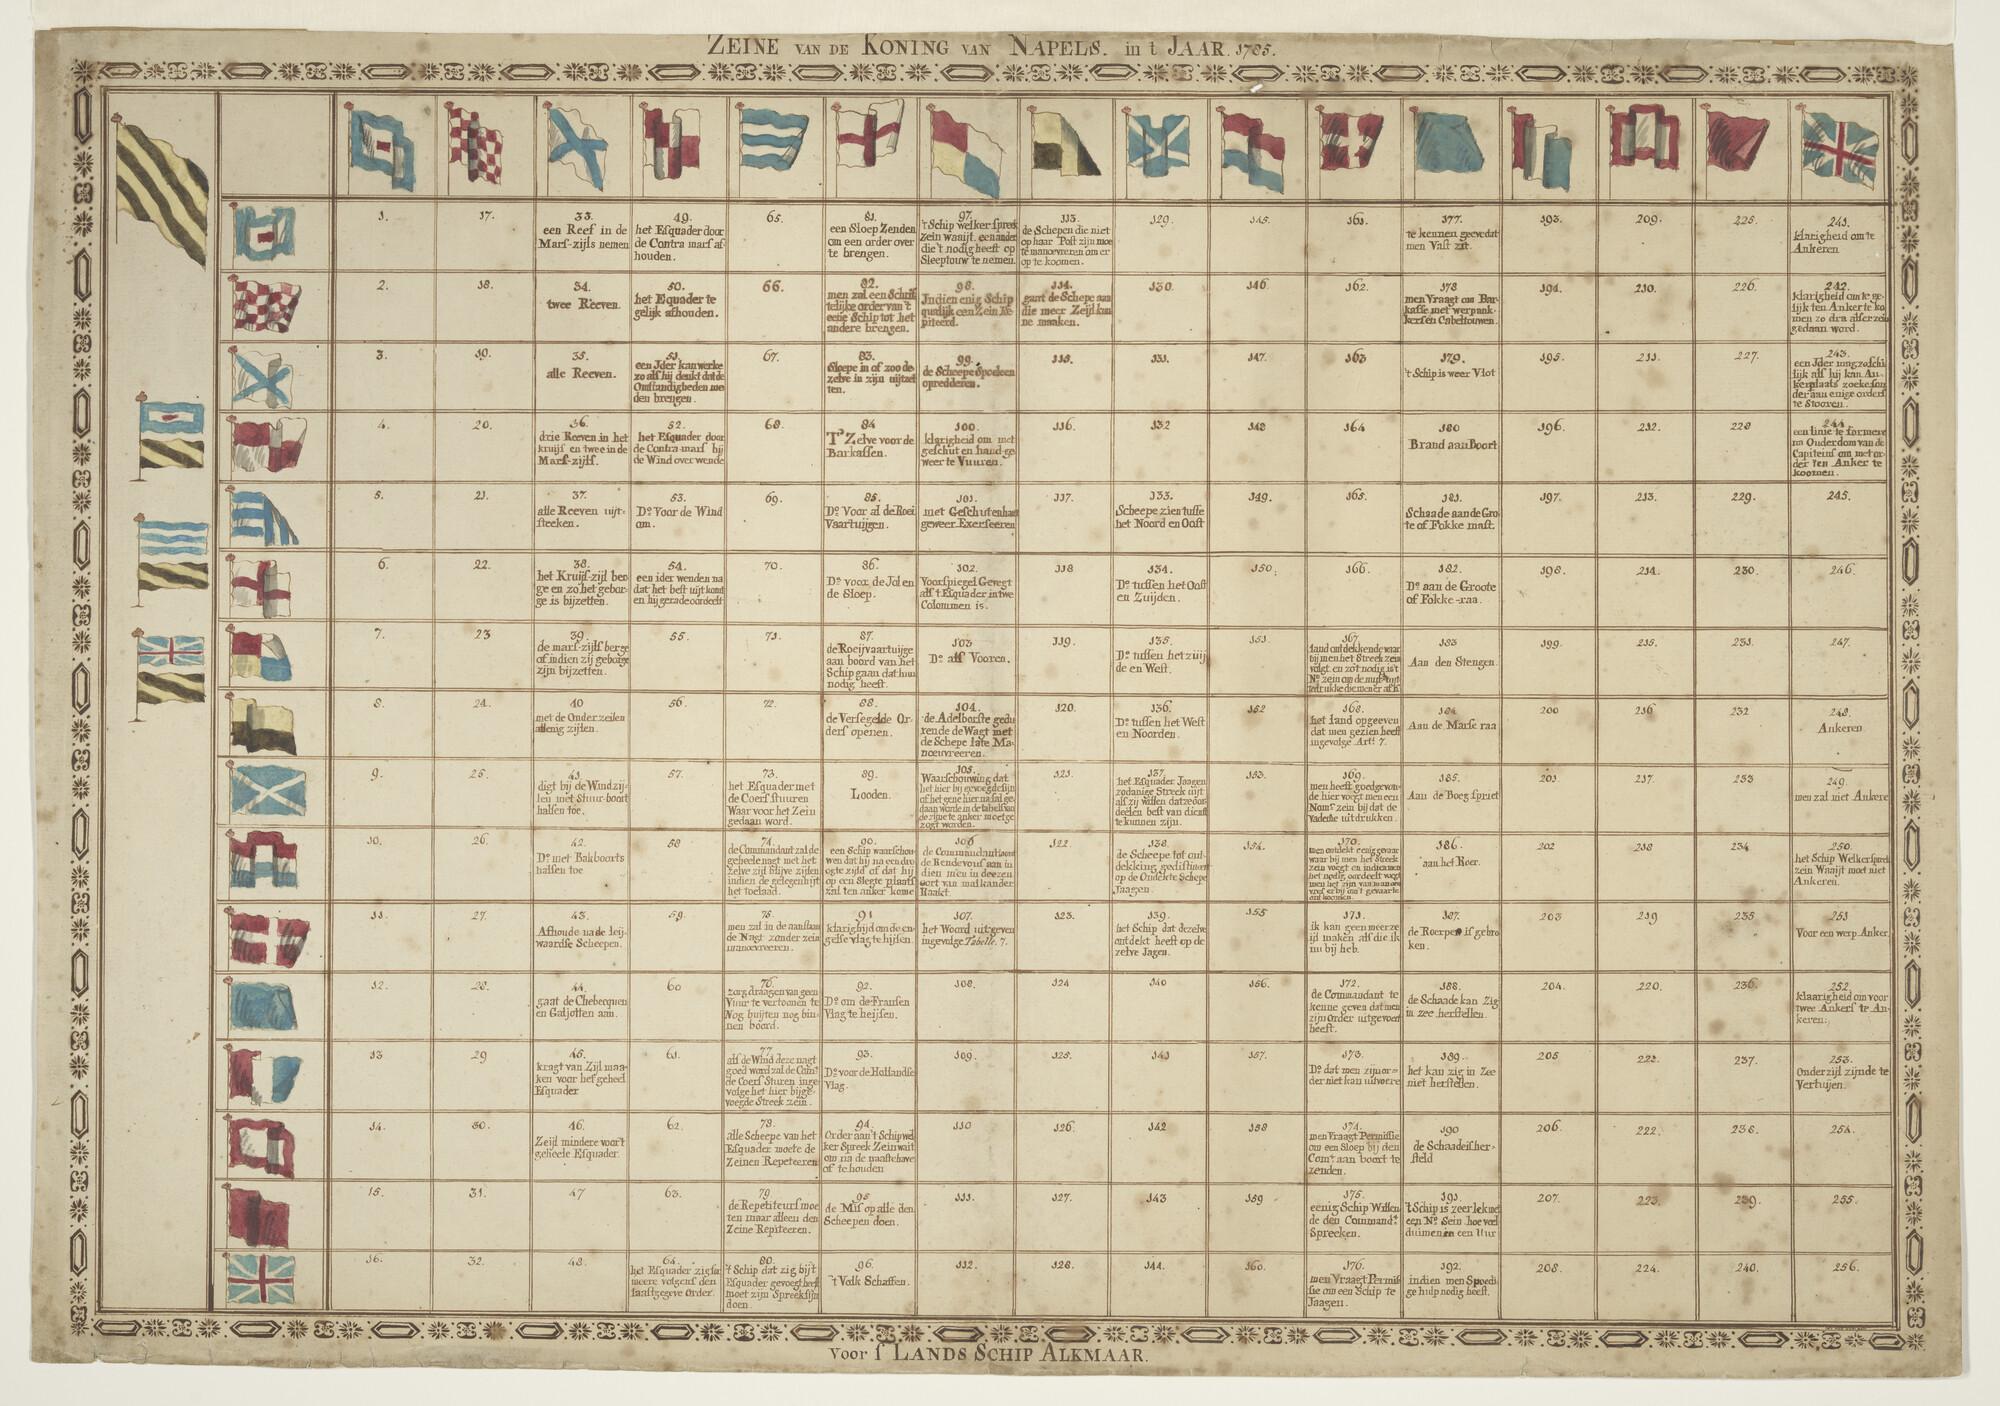 ZEINE VAN DE KONING VAN NAPELS. in t JAAR. 1785.
1.
17.
33.
een Reef in de
Mars-zijls nemen
49.
het Esquader door
de Contra mars af
houden.
65.
81.
een Sloep Zenden
om een order over
te brengen.
97.
't Schip welker spreek
zein waaijt. een ander
die 't nodig heeft op
Sleeptouw te nemen.
113.
de Schepen die niet
op haar Post zijn moe
te manoevreren om er
op te koomen.
129.
145.
161.
177.
te kennen geeve dat
men Vast zit.
193.
209.
225.
241.
klarigheid om te
Ankeren
2.
18.
34.
twee Reeven.
50.
het Equader te
gelijk afhouden.
66.
82.
men zal een Schrif
telijke order van 't
eene Schip tot het
andere brengen.
98.
Indien enig Schip
qualijk een Zein Re
piteerd.
114.
gaat de Schepe aan
die meer Zeijl kun
ne maaken.
130.
146.
162.
178
men Vraagt om Bar-
kasse met werpank-
kers en Cabeltouwen.
194.
210.
226.
242.
klarigheid om te ge-
lijk ten Anker te ko
men zo dra als er zein
gedaan word.
3.
19.
35.
alle Reeven.
51.
een Jder kan werke
zo als hij denkt dat de
Omstandigheden me
den brengen.
67.
83.
Sloepe in of zoo de-
zelve in zijn uijtzet
ten.
99.
de Scheepe Spoelen
opredderen.
115.
131.
147.
163
179.
't Schip is weer Vlot
195.
211.
227.
243.
een Jder
lijk als hij kan An-
kerplaats zoeke son
der aan enige orders
te Stooren.
4.
20.
36.
drie Reeven in het
kruijs en twee in de
Mars-zijls.
52.
het Esquader door
de Contra-mars bij
de Wind over wende
68.
84
Do Zelve voor de
Barkassen.
100.
klarigheid om met
geschut en hand-ge
weer te Vuuren.
116.
132
148
164
180
Brand aan Boort
196.
212.
228
244
een linie te formere
na Ouderdom van de
Capiteins om met or-
der ten Anker te
koomen.
5.
21.
37.
alle Reeven uijt-
steeken.
53.
Do Voor de Wind
om.
69.
85.
Do Voor al de Roei
Vaartuijgen.
101.
met Geschut en hant
geweer Exerseeren
117.
133.
Scheepe zien tusse
het Noord en Oost
149.
165.
181.
Schaade aan de Gro
te of Fokke mast.
197.
213.
229.
245.
6.
22.
38.
het Kruijs-zijl ber
ge en zo het gebor-
ge is bijzetten.
54.
een ider wenden na
dat het best uijt komt
en hij geraade oordeelt
70.
86.
Do voor de Jol en
de Sloep.
102.
Voorspiegel Gevegt
als 't Esquader in twe
Colommen is.
118
134.
Do tussen het Oost
en Zuijden.
150.
166.
182.
Do aan de Groote
of Fokke-raa.
198.
214.
230.
246.
7.
23
39.
de mars-zijls berge
of indien zij geborge
zijn bijzetten.
55.
71.
87.
de Roeijvaartuijge
aan boord van het
Schip gaan dat hun
nodig heeft.
103
Do als Vooren.
119.
135.
Do tussen het zuij
de en West.
151.
167.
land ontdekkende waar
bij men het Streek zein
183
Aan den Stengen.
199.
215.
231.
247.
8.
24.
40
met de Onder zeilen
alleenig zijlen.
56.
72.
88.
de Versegelde Or-
ders openen.
104.
de Adelborste gedu
rende de Wagt met
de Schepe late Ma-
noeuvreeren.
120.
136.
Do tussen het West
en Noorden.
152
168.
het land opgeeven
dat men gezien heeft
ingevolge Artl. 7.
184
Aan de Marse raa
200
216
232
248.
Ankeren
9.
25.
41.
digt bij de Wind zij-
len met Stuur-boort
halsen toe.
57.
73.
het Esquader met
de Coers stuuren
Waar voor het Zein
gedaan word.
89.
Looden.
105.
Waarschouwing dat
het hier bij gevoegde sijn
of het gene hier na sal ge
daan worde in de tabel van
de zijne te anker moet ge
zogt worden.
121.
137.
het Esquader Jaagen
zodanige Streek uijt
als zij willen dat ze oor-
deelen best van dienst
te kunnen zijn.
153.
169.
men heeft goed gevon-
de hier voegt men een
Nomr zein bij dat de
vademe uitdrukken.
185.
Aan de Boeg spriet
201.
217.
233
249.
men zal niet Ankere
10.
26.
42.
Do met Bakboorts
halsen toe
58
74.
de Commandant zal de
geheele nagt met het
zelve zijl blijve zijlen
indien de gelegenhijt
het toelaad.
90.
een Schip waarschou-
wen dat hij na een dro
ogte zijld of dat hij
op een Slegte plaats
zal ten anker kome
106
de Commandant toont
de Rendevous aan in
dien men in deezen
oort van malkander
Raakt.
122.
138.
de Scheepe tot ont-
dekking gedistineert
op de Ondekte Schepe
Jaagen.
154.
170.
186.
aan het Roer.
202
218
234
250.
het Schip Welker spreek
zein Waaijt moet niet
Ankeren.
11.
27.
43.
Afhoude na de leij-
waardse Scheepen.
59.
75.
men zal in de aanstaan
de Nagt zonder zein
manoevreeren.
91
klarighijd om de en-
gelse vlag te hijsen.
107.
het Woord uitgeven
ingevolge Tabelle. 7.
123.
139.
het Schip dat dezelve
ontdekt heeft op de
zelve Jagen.
155
171.
ik kan geen meer ze
ijl maken als die ik
nu bij heb.
187.
de Roerpen is gebro
ken.
203
219
235
251
Voor een werp Anker
12.
28.
44.
gaat de Chebecquen
en Galjotten aan.
60
76.
zorg draagen van geen
Vuur te vertoonen te
Nog buijten nog bin-
nen boord.
92.
Do om de Fransen
Vlag te heijsen.
108.
124
140
156.
172.
de Commandant te
kenne geven dat men
zijn Order uitgevoert
heeft.
188.
de Schaade kan Zig
in zee herstellen.
204.
220.
236.
252.
klaarigheid om voor
twee Ankers te An-
keren.
13
29
45.
kragt van Zijl maa-
ken voor het geheel
Esquader
61.
77.
als de Wind deze nagt
goed word zal de Comt
de Coers Sturen inge
volge het hier bijge-
voegde Streek zein.
93.
Do voor de Hollandse
Vlag.
109.
125.
141
157.
173.
Do dat men zijn or-
der niet kan uitvoere
189.
het kan zig in Zee
niet herstellen.
205
221.
237.
253.
Onder zijl zijnde te
Vertuijen.
14.
30.
46.
Zeijl mindere voor't
geheele Esquader.
62.
78.
alle Scheepe van het
Esquader moete de
Zeinen Repeteeren
94.
Order aan't Schip wel
ker Spreek Zein wait
om na de naaste have
of te houden
110
126.
142
158
174.
men Vraagt Permissie
om een Sloep bij den
Comt aan boort te
zenden.
190
de Schaade is her-
steld
206.
222.
238.
254.
15.
31.
47
63.
79.
de Repetiteurs moe
ten maar alleen den
Zeine Repiteeren.
95
de Mis op alle den
Scheepen doen.
111.
127.
143
159
175.
eenig Schip Willen
de den Commandt
Spreeken.
191.
't Schip is zeer lek met
een No Sein hoe veel
duimen in een Uur
207.
223.
239.
255.
16.
32.
48.
64.
het Esquader zig for
meere volgens den
laast gegeve Order.
80.
't Schip dat zig bij't
Esquader gevoegt heeft
moet zijn Spreeksijn
doen.
96.
't Volk Schaffen.
112.
128.
144.
160.
176.
men Vraagt Permis
sie om een Schip te
Jaagen.
192.
indien men Spoedi
ge hulp nodig heeft.
208.
224.
240.
256.
Voor s' LANDS SCHIP ALKMAAR.